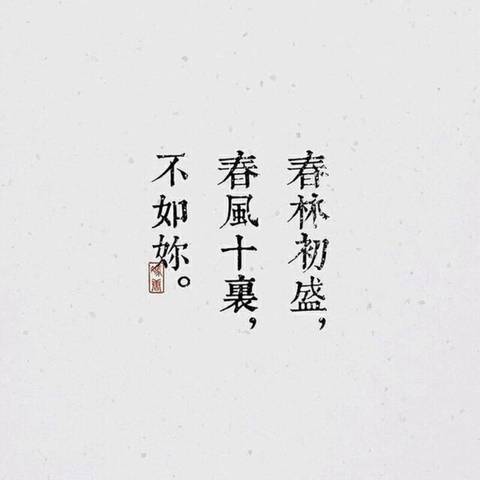 春林初盛，
春風十裏，
不如妳。